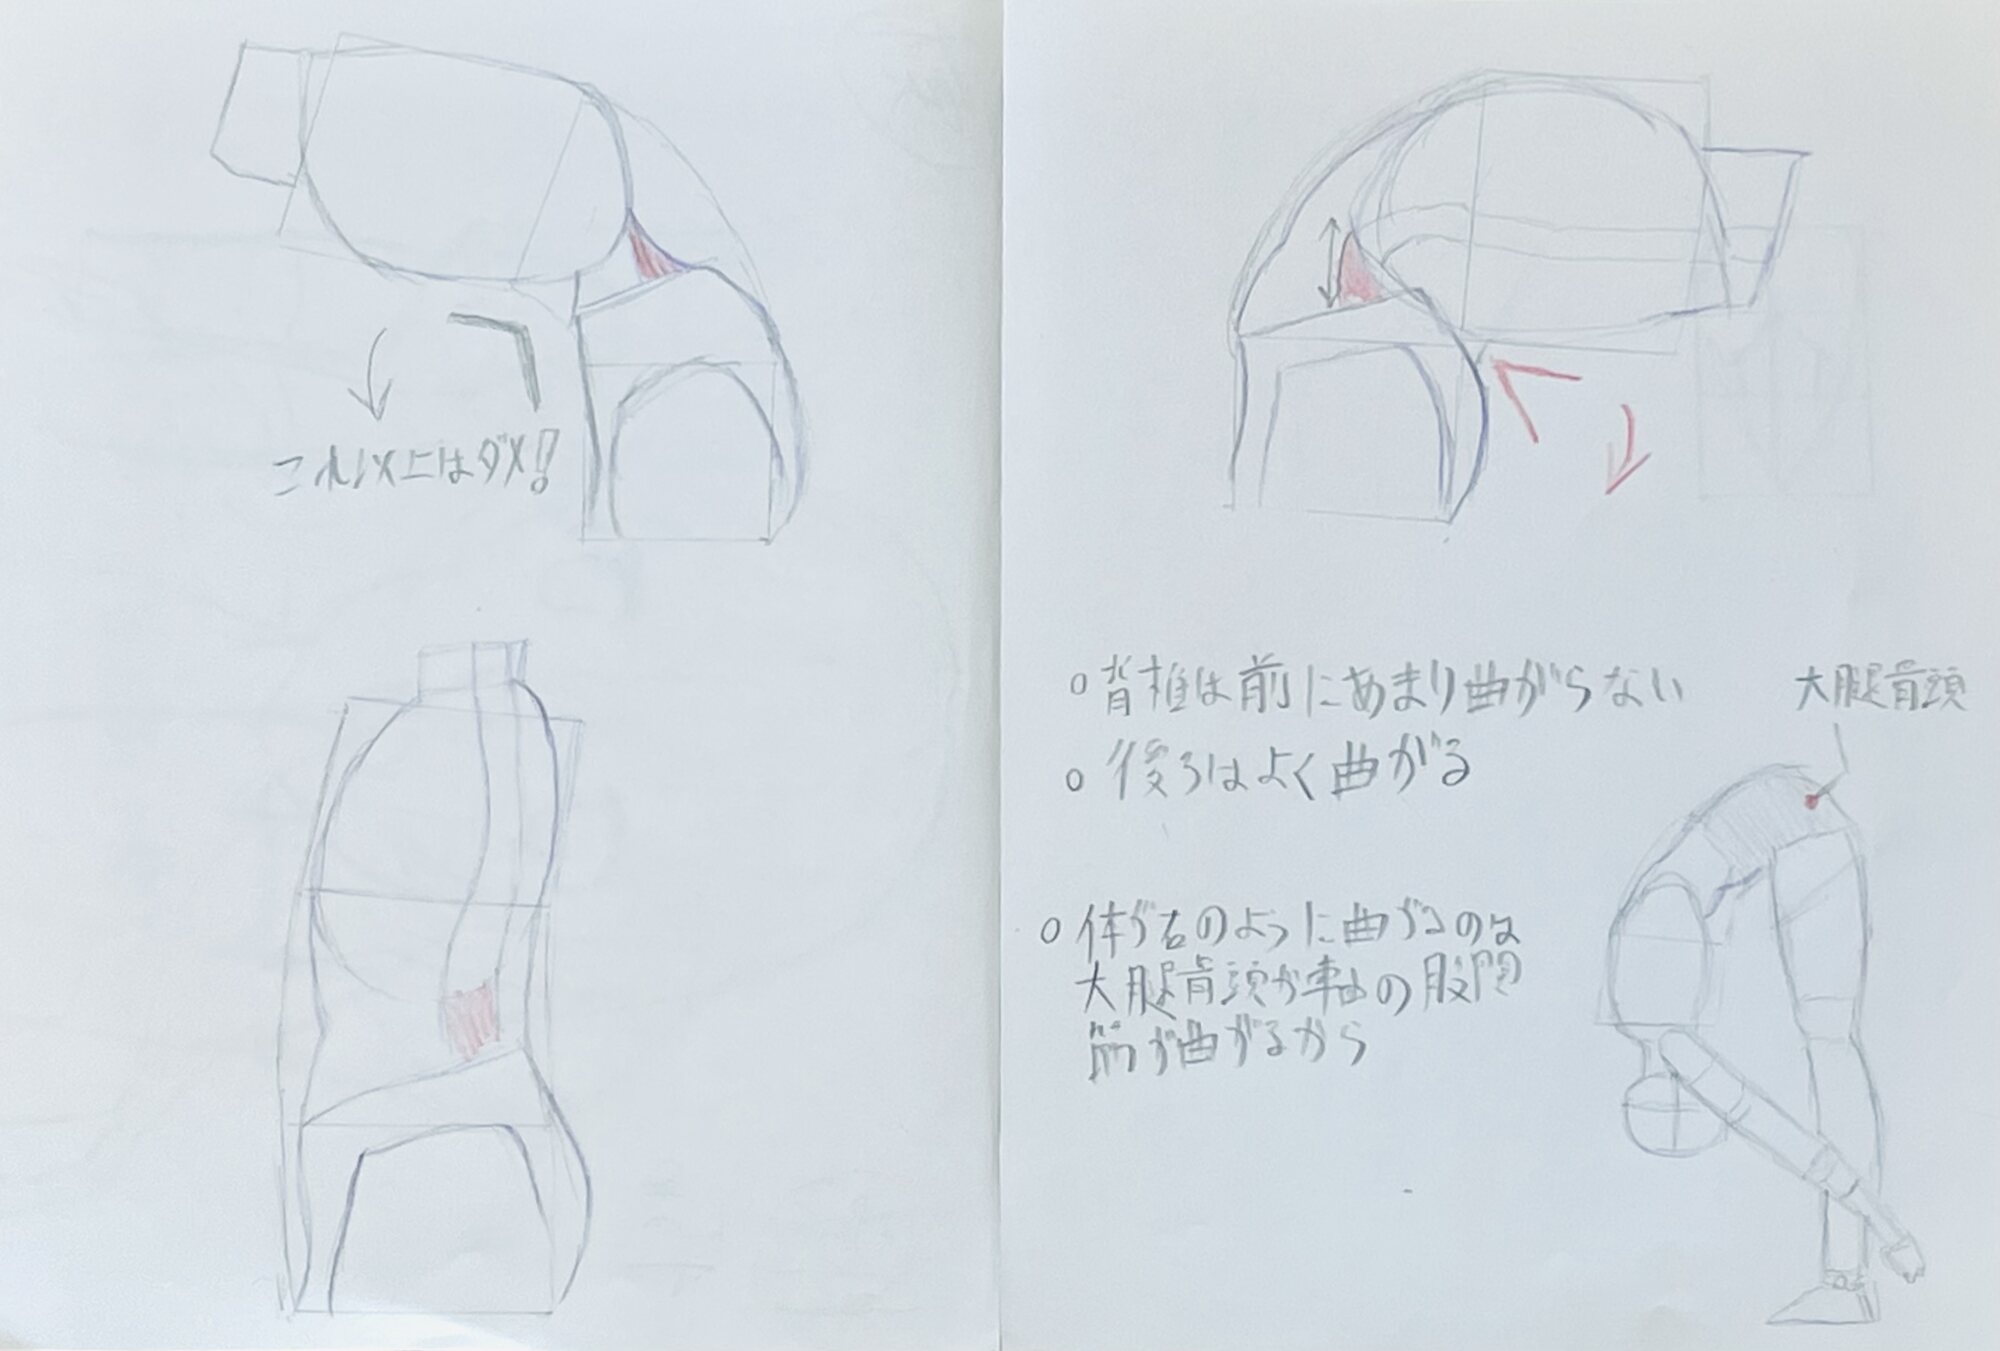 これ以上はダメ!!
○背椎は前にあまり曲がらない
○後ろはよく曲がる
大腿骨頭
○体が右のように曲がるのは
大腿骨頭が軸の股関
節が曲がるから